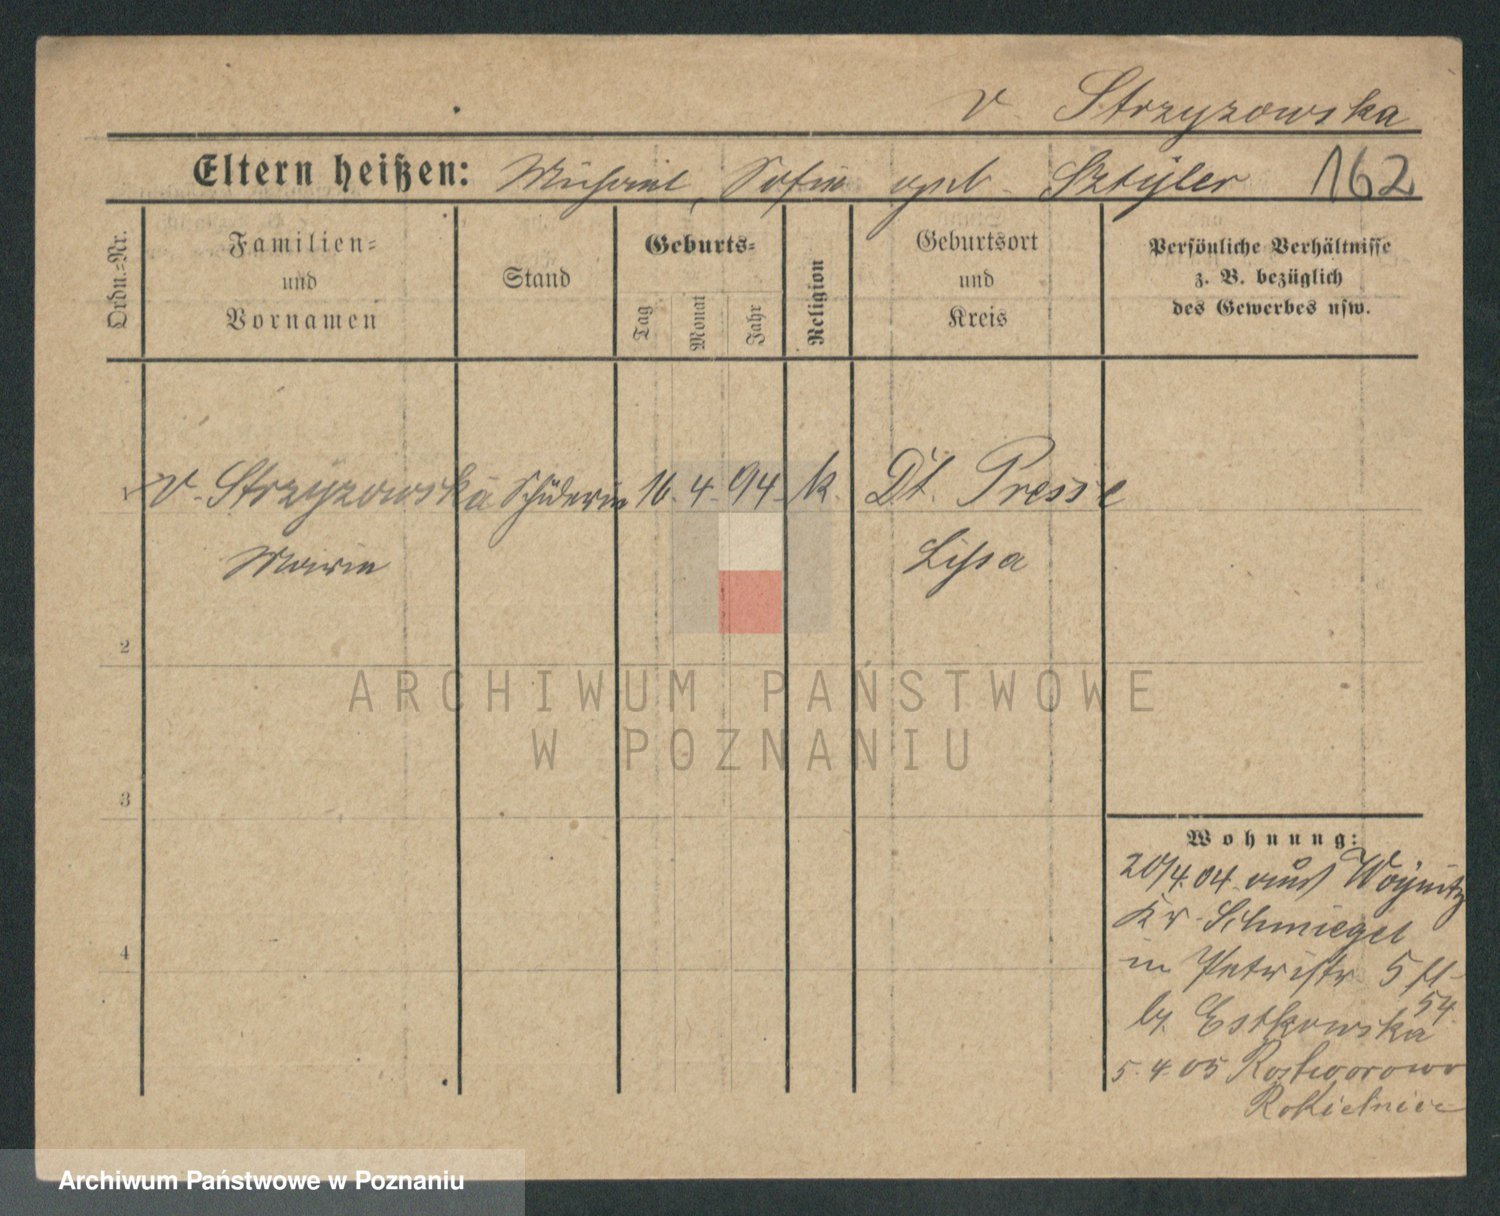 v. Strzyzowska
Eltern heißen: Michael, Sofia geb. Sztyler 162
Ordn.=Nr.
Familien=
und
Vornamen
Stand
Geburts=
Tag
Monat
Jahr
Religion
Geburtsort
und
Kreis
Persönliche Verhältnisse
z. B. bezüglich
des Gewerbes usw.
1 v. Strzyzowska Schülerin 16. 4. 94. k. Dt. Presse
Marie Lissa
2
3
4
Wohnung:
20/4. 04. aus Woynitz
Kr. Schmiegel
in Petristr 5 II
b. Estkowska 54.
5. 4. 05 Rostworowo
Rokietnice
ARCHIWUM PAŃSTWOWE
W POZNANIU
Archiwum Państwowe w Poznaniu